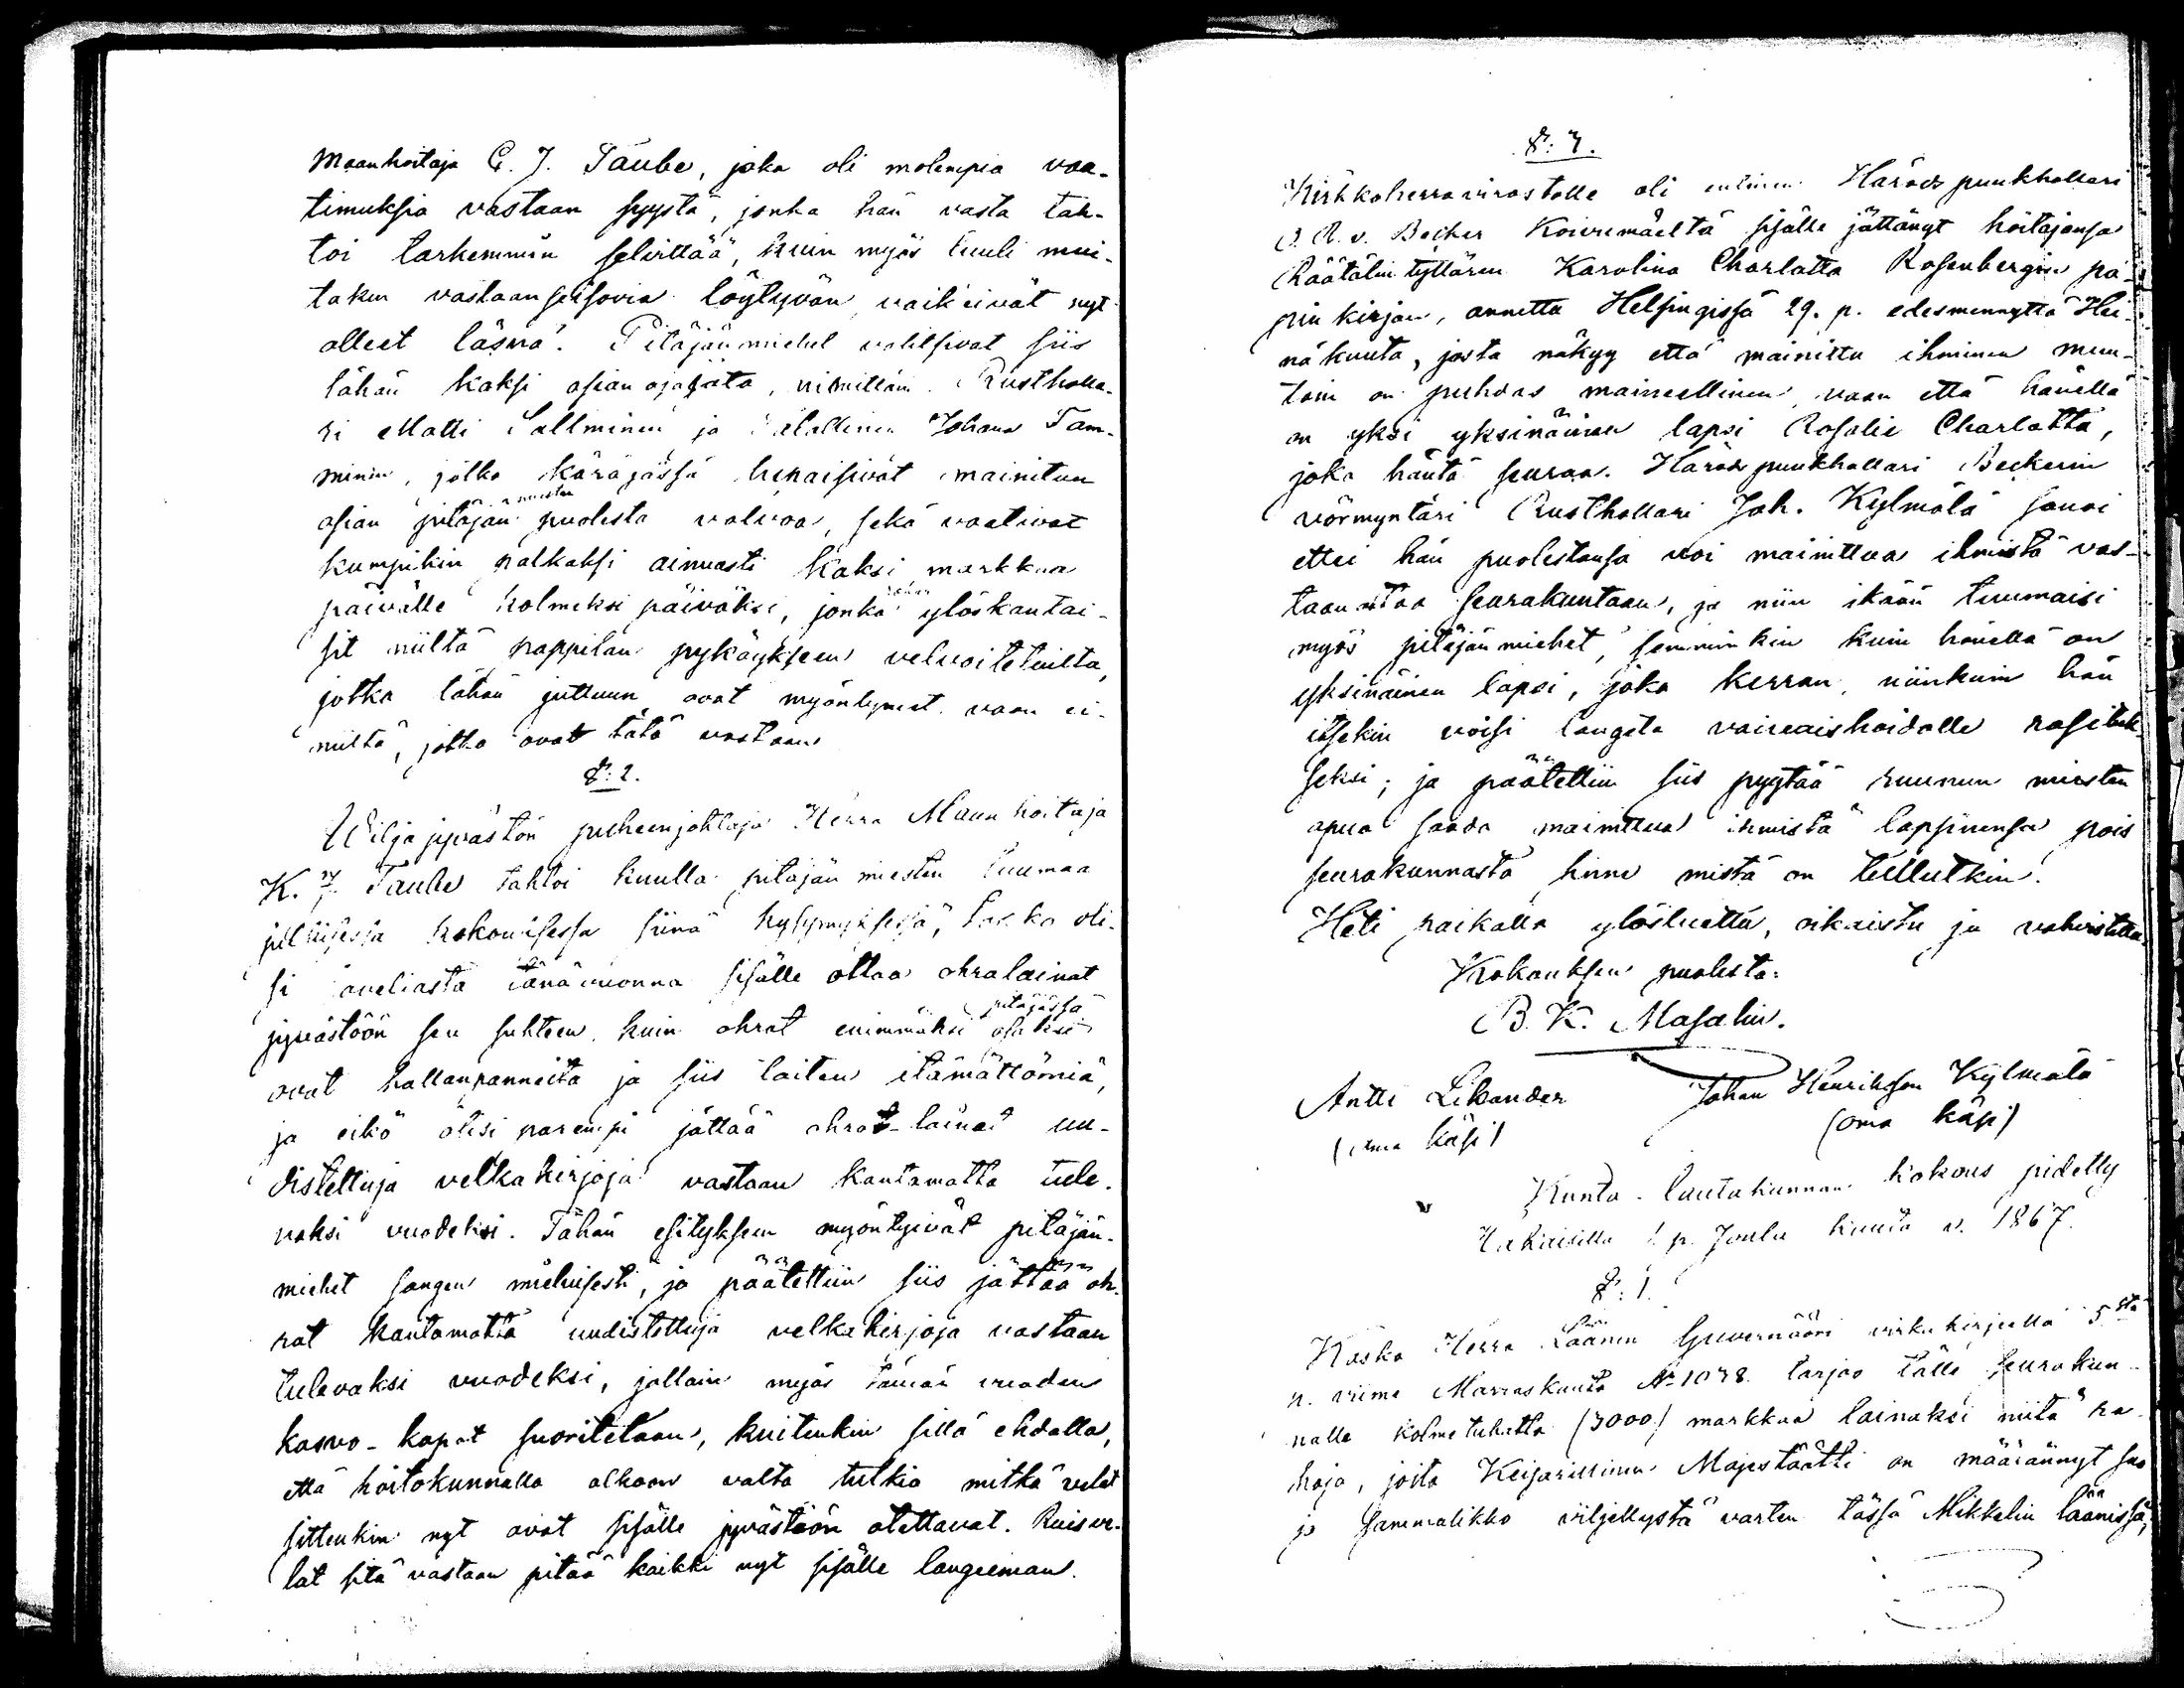 Maanhoitaja C. J. Taube, joka oli molempia vaa-
timuksia vastaan syystä, jonka hän vasta tah-
toi tarkemmin selvittää, kuin myös luuli mui-
takin vastaanseisovia löytyvän vaik'eivät nyt
olleet läsnä. Pitäjänmiehet valitsivat siis
tähän kaksi asianajajata, nimittäin Rustholla-
ri Matti Sallminen ja Talollinen Johan Tam-
minen, jotka käräjässä
asian pitäjän miesten puolesta valvoa, sekä vaativat
kumpikin palkaksi ainuasti kaksi markkaa
päivälle kolmeksi päiväksi, jonka ylöskantai-
sit niiltä pappilan pykäykseen velvoitetuilta,
jotka tähän juttuun ovat myöntyneet vaan ei
niiltä, jotka ovat tätä vastaan
§: 2.
Wiljajyvästön puheenjohtaja Herra Maanhoitaja
K. J. Taube tahtoi kuulla pitäjän miesten tuumaa
julkisessa kokouksessa siinä kysymyksessä,
si tänä vuonna sisälle ottaa ohralainat
jyvästöön sen suhteen kuin ohrat enimmäksi osaksi pitäjässä
ovat hallanpanneita ja siis taiten itämättömiä,
ja eikö olisi parempi jättää ohrat-lainat uu-
distettuja velkakirjoja vastaan kantamatta tule-
vaksi vuodeksi. Tähän esitykseen myöntyivät pitäjän-
miehet sangen mieluisesti, ja päätettiin siis jättää oh-
rat kantamatta uudistettuja velkakirjoja vastaan
tulevaksi vuodeksi, jolloin myös tämän vuoden
kasvo-kapat suoritetaan, kuitenkin sillä ehdolla,
että hoitokunnalla olkoon valta tutkia mitkä velat
sittenkin nyt ovat sisälle jyvästöön otettavat. Ruisve-
lat sitä vastaan pitää kaikki nyt sisälle langeeman.
§: 3.
Kirkkoherravirastolle oli entinen Härads puukhollari
v. Becker Koiremäeltä sisälle jättänyt hoitajansa
Räätälin tyttären Karolina Charlotta Rosenbergin pa-
pin kirjan, annettu Helsingissä 29. p. edesmennyttä Hei-
näkuuta, josta näkyy että mainittu ihminen muu-
toin on puhdas maineellinen, vaan että hänellä
on yksi yksinäinen lapsi Rosalie Charlotta,
joka häntä seuraa. Härads puukhollari Beckerin
vörmyntäri Rusthollari Joh. Kylmälä sanoi
ettei hän puolestansa voi mainittua ihmistä vas-
taanottaa seurakuntaan, ja niin ikään tuumaisi
myös pitäjänmiehet, semminkin kuin hänellä on
yksinäinen lapsi, joka kerran, niinkuin hän
itsekin voisi langeta vaivaishoidolle rasituk-
seksi; ja päätettiin siis pyytää ruunun miesten
apua saada mainittua ihmistä lapsinensa pois
seurakunnasta sinne mistä on tullutkin.
Heti paikalla ylösluettu, oikaistu ja vahvistettu.
Kokouksen puolesta:
B. K. Masalin.
Antti Likander Johan Henriksson Kylmälä
(oma käsi) (oma käsi)
Kunta-lautakunnan kokous pidetty
p. Joulu kuuta v. 1867.
§: 1.
Koska Herra Läänin Guvernööri virkakirjeellä 5stä
p. viime Marraskuuta No 1078 tarjoo tälle seurakun-
nalle kolmetuhatta (3000) markkaa lainaksi niitä ra-
hoja, joita Keisarillinen Majestäätti on määrännyt suo
ja sammalikko viljellystä varten tässä Mikkelin läänissä,